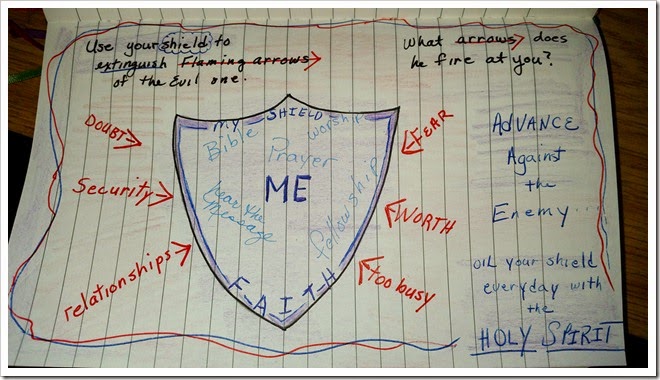 Use your shield to
extinguish flaming arrows
of the Evil one.
What arrows does
he fire at you?
DOUBT
Security
relationships
MY SHIELD
Bible
worship
Prayer
ME
hear the
Message
fellowship
F-A-I-T-H
FEAR
WORTH
too busy
ADVANCE
Against
the
Enemy
OIL your shield
everyday with
the
HOLY SPIRIT